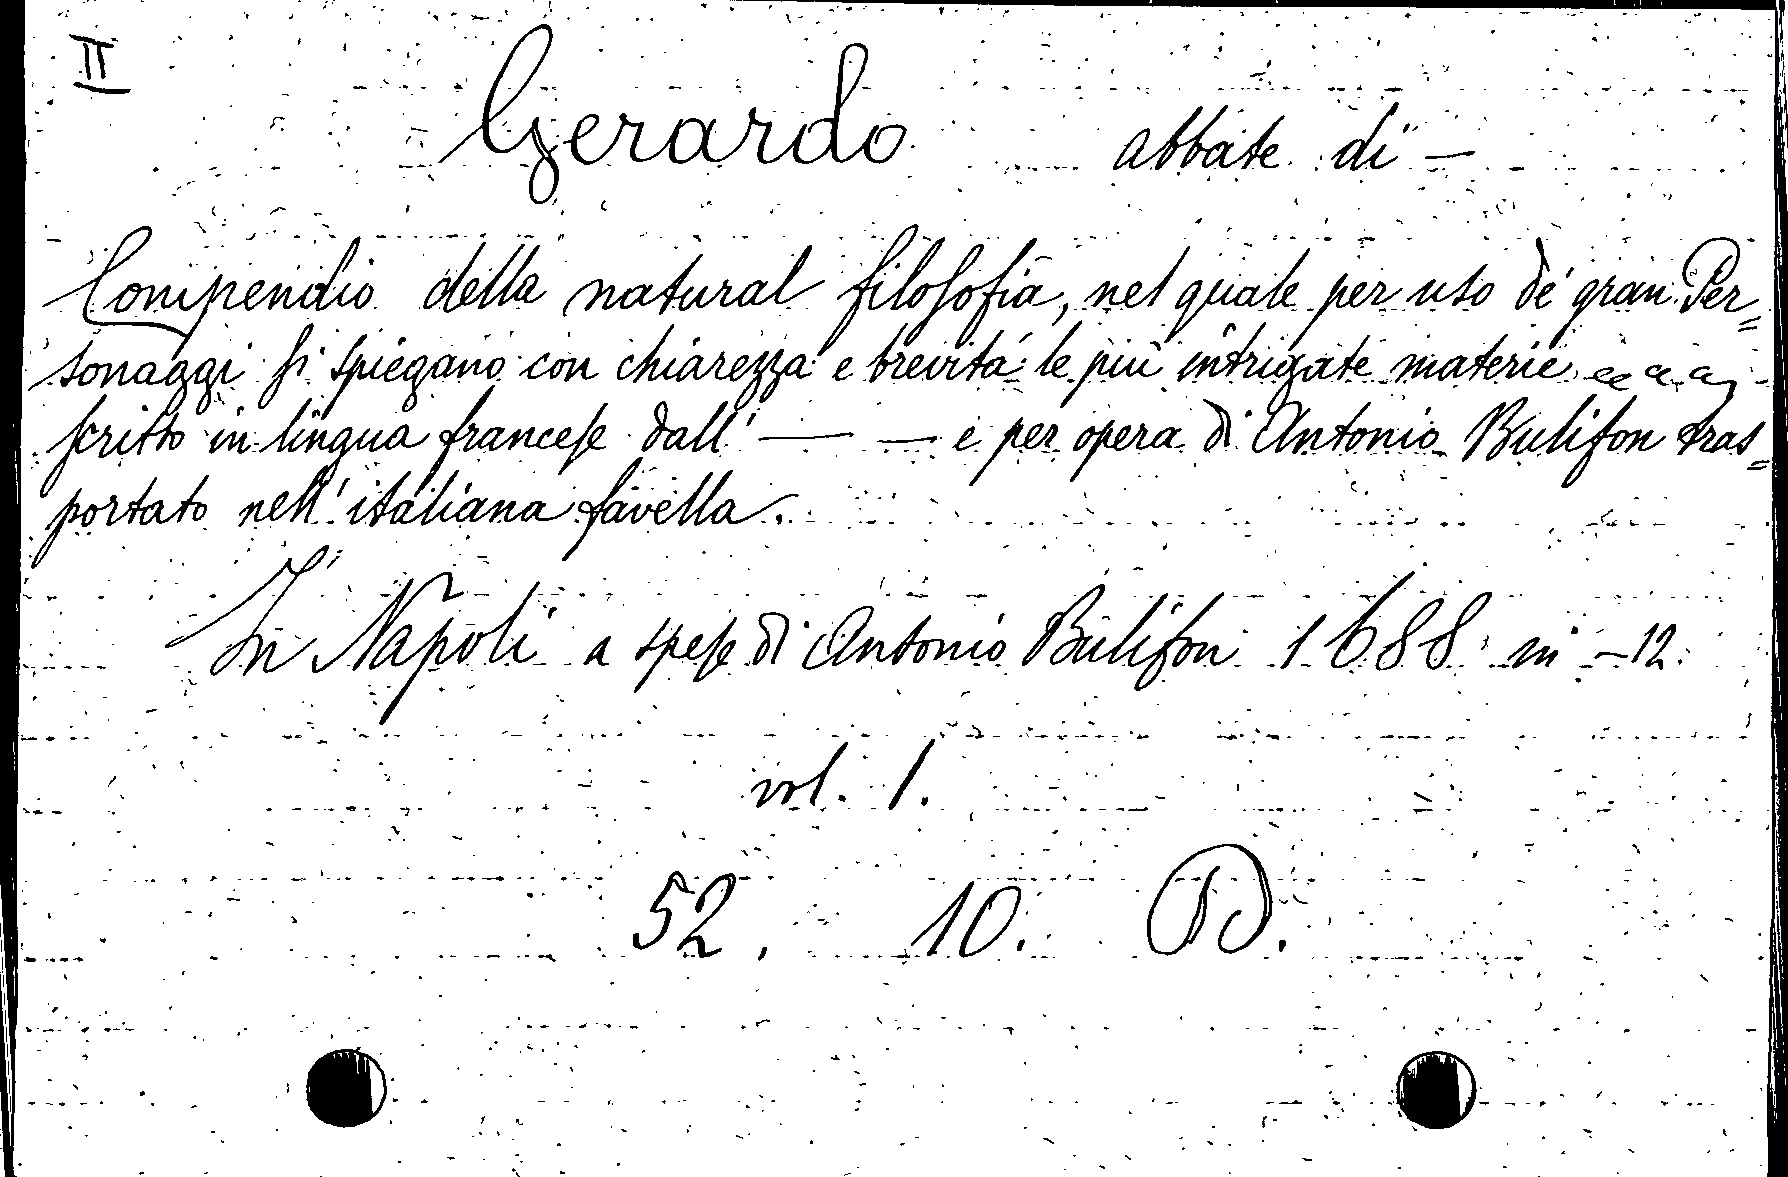 II
Gerardo abbate di —
Compendio della natural filosofia, nel quale per uso de' gran Per=
sonaggi si spiegano con chiarezza e brevità le più intrigate materie
scritto in lingua francese dall' — — e per opera di Antonio Bulifon tras=
portato nell' italiana favella.
In Napoli a spese di Antonio Bulifon 1688 in -12.
vol. 1.
52. 10.